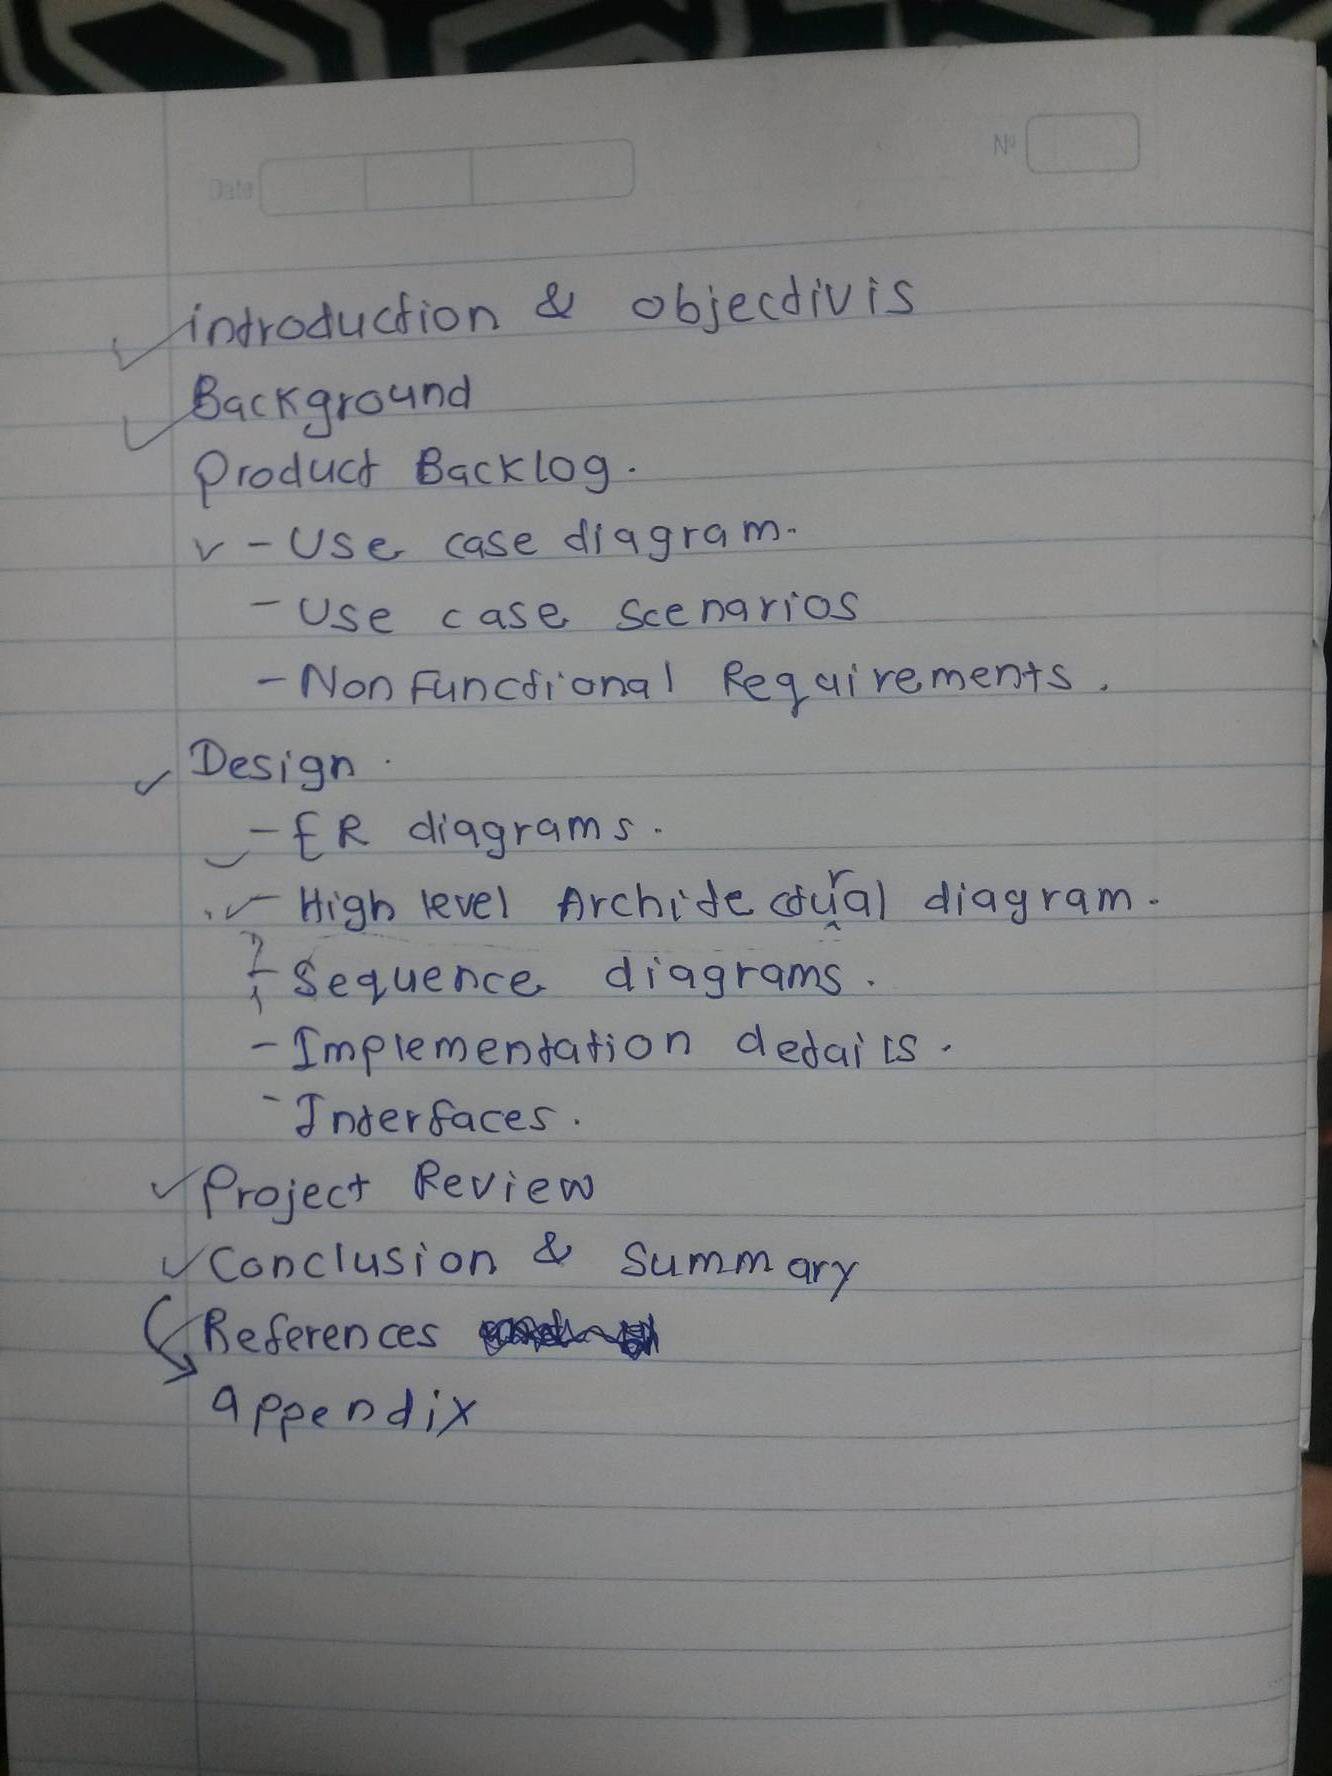 Date
No
introduction & objectivis
Background
Product Backlog.
- Use case diagram.
- Use case Scenarios
- Non Functional Requirements.
Design.
- ER diagrams.
- High level Architectural diagram.
? - Sequence diagrams.
- Implementation details.
- Interfaces.
Project Review
Conclusion & Summary
References
appendix